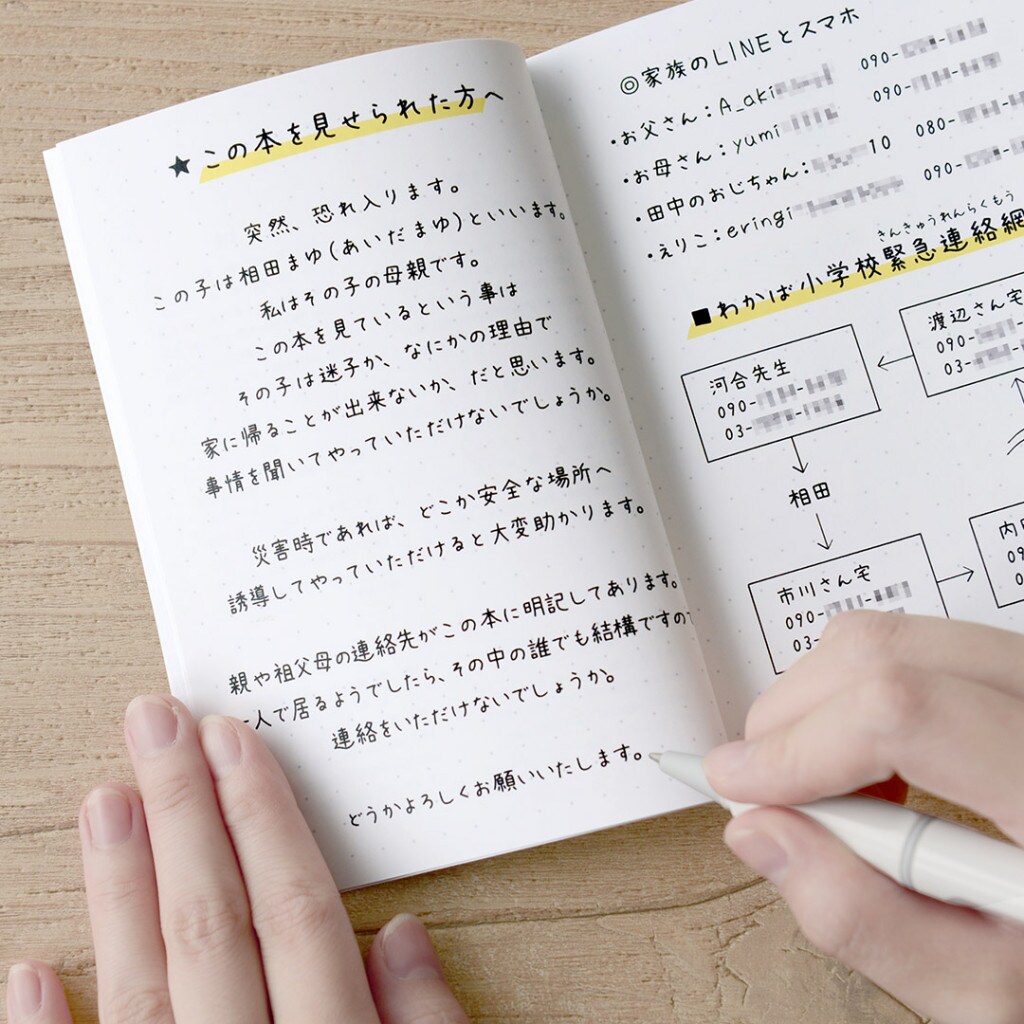 ★この本を見せられた方へ
突然、恐れ入ります。
この子は相田まゆ(あいだまゆ)といいます。
私はその子の母親です。
この本を見ているという事は
その子は迷子か、なにかの理由で
家に帰ることが出来ないか、だと思います。
事情を聞いてやっていただけないでしょうか。
災害時であれば、どこか安全な場所へ
誘導してやっていただけると大変助かります。
親や祖父母の連絡先がこの本に明記してあります。
一人で居るようでしたら、その中の誰でも結構ですので
連絡をいただけないでしょうか。
どうかよろしくお願いいたします。
◎家族のLINEとスマホ
・お父さん:A_aki 090-
・お母さん:yumi 090-
・田中のおじちゃん: 10 080-
・えりこ:eringi 090-
きんきゅうれんらくもう
■わかば小学校緊急連絡網
河合先生
090-
03-
渡辺さん宅
090-
03-
相田
市川さん宅
090-
03-
内田